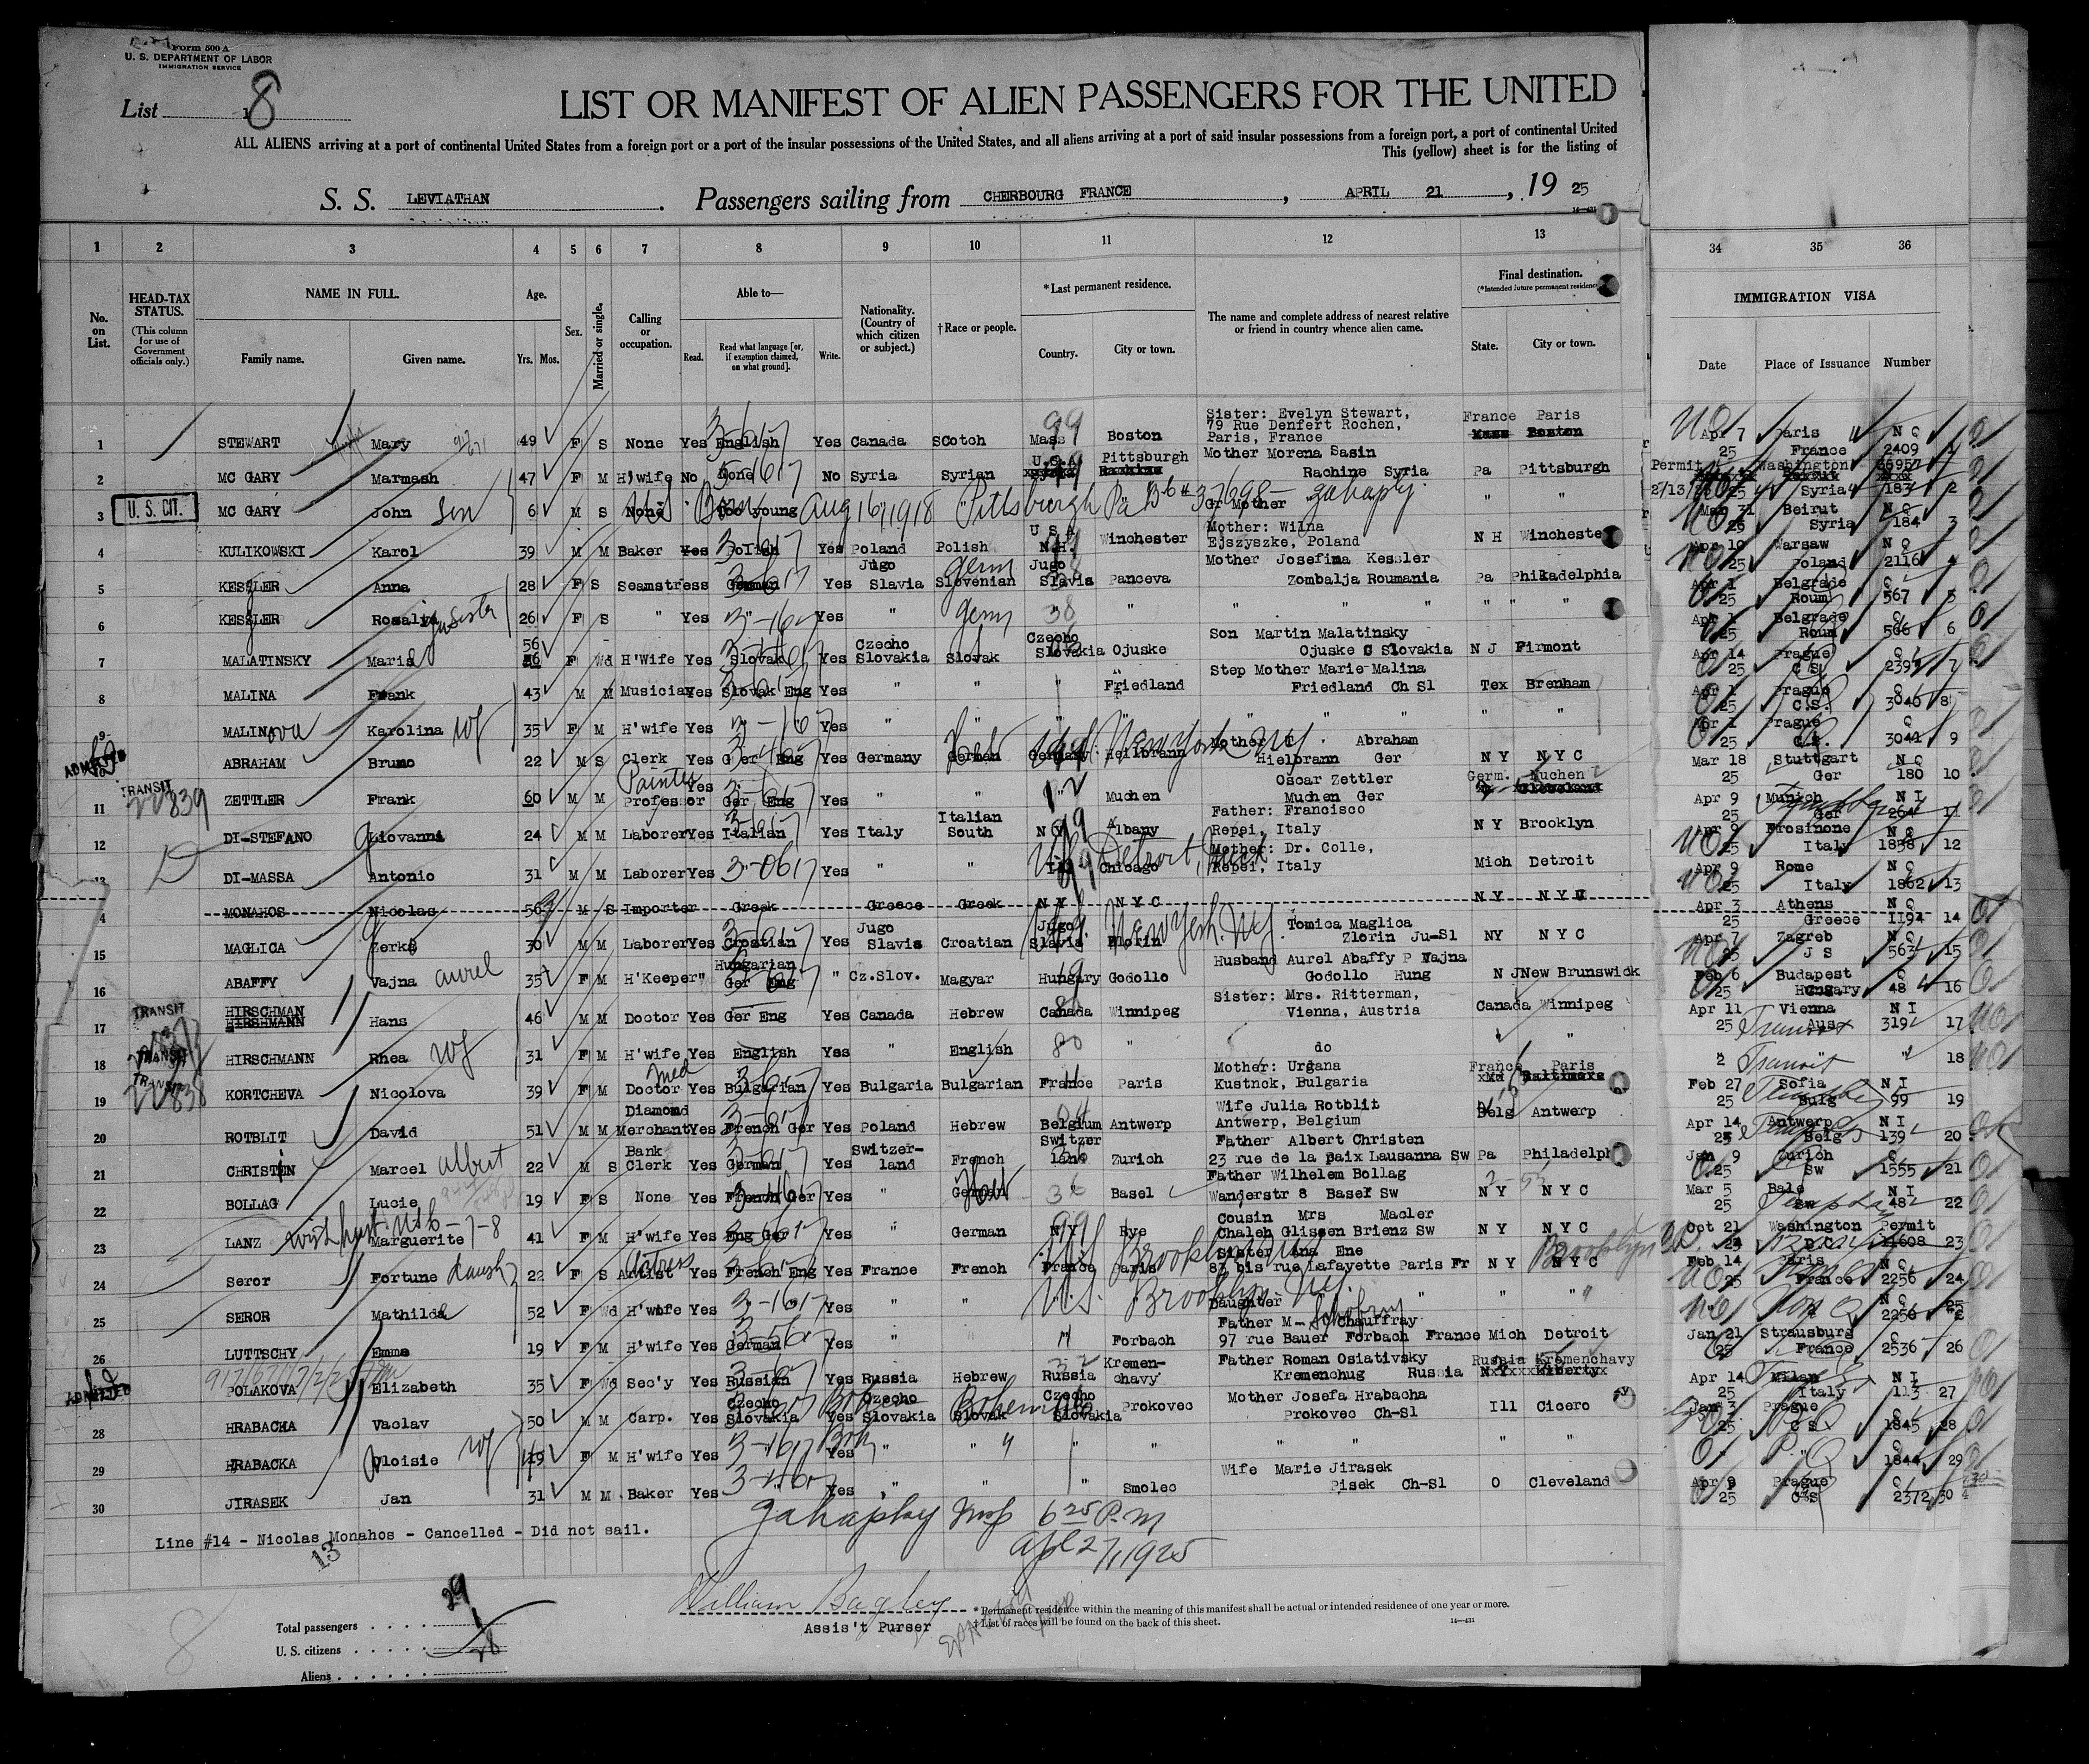 Form 500 A
U. S. DEPARTMENT OF LABOR
IMMIGRATION SERVICE
List 8
LIST OR MANIFEST OF ALIEN PASSENGERS FOR THE UNITED
ALL ALIENS arriving at a port of continental United States from a foreign port or a port of the insular possessions of the United States, and all aliens arriving at a port of said insular possessions from a foreign port, a port of continental United
This (yellow) sheet is for the listing of
S. S. LEVIATHAN . Passengers sailing from CHERBOURG FRANCE , APRIL 21 , 19 25
1 2 3 4 5 6 7 8 9 10 11 12 13 34 35 36
No. on List. HEAD-TAX STATUS. (This column for use of Government officials only.) NAME IN FULL. Family name. Given name. Age. Yrs. Mos. Sex. Married or single. Calling or occupation. Able to— Read. Read what language [or, if exemption claimed, on what ground]. Write. Nationality. (Country of which citizen or subject.) †Race or people. *Last permanent residence. Country. City or town. The name and complete address of nearest relative or friend in country whence alien came. Final destination. (*Intended future permanent residence) State. City or town. IMMIGRATION VISA Date Place of Issuance Number
1 STEWART Mary 49 F S None Yes English Yes Canada SCotch Mass 99 Boston Sister: Evelyn Stewart, 79 Rue Denfert Rochen, Paris, France France Paris Mass Boston Apr 7 25 Paris France N Q 2409 1
2 MC GARY Marmash 47 F M H'wife No None No Syria Syrian U.S. Pittsburgh Mother Morena Sasin Rachine Syria Pa Pittsburgh Permit Washington 66957 2
3 U. S. CIT. MC GARY John Son 6 M S None Too young US Born Aug 16, 1918 Pittsburgh Pa Gr Mother " " Mar 31 Beirut Syria 184 3
4 KULIKOWSKI Karol 39 M M Baker Yes Polish Yes Poland Polish U S N.H. Winchester Mother: Wilna Ejszyszke, Poland N H Winchester Apr 10 25 Warsaw Poland N Q 2116 4
5 KESSLER Anna 28 F S Seamstress German Yes Jugo Slavia Slovenian Germ Jugo Slavia Panceva Mother Josefina Kessler Zombalja Roumania Pa Philadelphia Apr 1 25 Belgrade Roum Q 567 5
6 KESSLER Rosalia sister 26 F S " Yes " Yes " Germ 38 " " " " " " " Apr 1 25 Belgrade Roum Q 566 6
7 MALATINSKY Maria 56 F Wd H'Wife Yes Slovak Yes Czecho Slovakia Slovak Czecho Slovakia Ojuske Son Martin Malatinsky Ojuske C Slovakia N J Firmont Apr 14 25 Prague C S Q 2393 7
8 MALINA Frank 43 M M Musician Yes Slovak Eng Yes " " " Friedland Step Mother Marie Malina Friedland Ch Sl Tex Brenham Apr 1 25 Prague C.S. Q 3040 8
9 MALINova Karolina wf 35 F M H'wife Yes Yes " " " " " " " " " Apr 1 25 Prague C.S. Q 3041 9
10 ADMITTED ABRAHAM Bruno 22 M S Clerk Yes Ger Eng Yes Germany German Germany Heilbrann New York NY Mother Abraham Hielbrann Ger N Y N Y C Mar 18 25 Stuttgart Ger N Q 180 10
11 TRANSIT ZETTLER Frank 60 M M Painter Professor Yes Ger Eng Yes " " Muchen Oscar Zettler Muchen Ger Germ. Muchen Cleveland Apr 9 25 Munich Ger N I 264 11
12 DI-STEFANO Giovanni 24 M M Laborer Yes Italian Yes Italy Italian South N Y 99 Albany Father: Francisco Repei, Italy N Y Brooklyn Apr 9 25 Frosinone Italy N Q 1858 12
13 DI-MASSA Antonio 31 M M Laborer Yes " Yes " " Ill Chicago US Detroit, Mich Mother: Dr. Colle, Repei, Italy Mich Detroit Apr 9 25 Rome Italy N Q 1862 13
14 MONAHOS Nicolas 56 M S Importer Greek Greece Greek N Y N Y C N Y N Y C Apr 3 25 Athens Greece N Q 1194 14
15 MAGLICA Zerko 30 M M Laborer Yes Croatian Yes Jugo Slavia Croatian Jugo Slavia Zlorin New York. NY. Tomica Maglica Zlorin Ju-Sl NY N Y C Apr 7 25 Zagreb J S N Q 563 15
16 ABAFFY Vajna Aurel 35 F M H'Keeper " Hungarian Ger Eng " Cz.Slov. Magyar Hungary Godollo Husband Aurel Abaffy P Vajna Godollo Hung N J New Brunswick Feb 6 25 Budapest Hungary Q 48 16
17 TRANSIT HIRSCHMAN HIRSHMANN Hans 46 M M Doctor Yes Ger Eng Yes Canada Hebrew Canada Winnipeg Sister: Mrs. Ritterman, Vienna, Austria Canada Winnipeg Apr 11 25 Vienna Aus Transit N I 319 17
18 TRANSIT HIRSCHMANN Rhea wf 31 F M H'wife Yes English Yes " English 80 " do " " " Transit " 18
19 TRANSIT 838 KORTCHEVA Nicolova 39 F M Med Doctor Yes Bulgarian Yes Bulgaria Bulgarian France Paris Mother: Urgana Kustnck, Bulgaria France Paris Baltimore Feb 27 25 Sofia Bulg N I 99 19
20 ROTBLIT David 51 M M Diamond Merchant Yes French Ger Yes Poland Hebrew Belgium Antwerp Wife Julia Rotblit Antwerp, Belgium Belg Antwerp Apr 14 25 Antwerp Belg N I 139 20
21 CHRISTEN Marcel Albert 22 M S Bank Clerk Yes German Yes Switzer-land French Switzer land Zurich Father Albert Christen 23 rue de la paix Lausanna Sw Pa Philadelph Jan 9 25 Zurich Sw Q 1555 21
22 BOLLAG Lucie 19 F S None Yes French Ger Yes " German Basel Father Wilhelem Bollag Wanderstr 8 Basel Sw N Y N Y C Mar 5 25 Bale Sw N I 48 22
23 LANZ Marguerite 41 F M H'wife Yes Eng Ger Yes " German N Y 99 Rye Cousin Mrs Macler Chaleh Glissen Brienz Sw N Y N Y C Oct 21 24 Washington D.C. Permit 11608 23
24 Seror Fortune daugh 22 F S Artist Actress Yes French Eng Yes France French France Paris US Brooklyn NY Sister Ana Ene 87 bis rue Lafayette Paris Fr N Y N Y C Brooklyn Feb 14 25 Paris France N Q 2256 24
25 SEROR Mathilda 52 F Wd H'wofe Yes Yes " " U.S. Brooklyn NY. Daughter " " " " " N Q 2258 25
26 LUTTSCHY Emma 19 F M H'wife Yes German Yes " " " Forbach Father M- Chauffray 97 rue Bauer Forbach France Mich Detroit Jan 21 25 Strausburg France Q 2536 26
27 ADMITTED POLAKOVA Elizabeth 35 F Wd Sec'y Yes Russian Yes Russia Hebrew Russia Kremen-chavy Father Roman Osiativsky Kremenchug Russia Russia Kremenchavy Liberty Apr 14 25 Milan Italy N I 113 27
28 HRABACKA Vaclav 50 M M Carp. Yes Czecho Slovakia Yes Czecho Slovakia Slovak Bohemian Czecho Slovakia Prokovec Mother Josefa Hrabacha Prokovec Ch-Sl Ill Cicero Jan 3 25 Prague C S Q 1845 28
29 HRABACKA Aloisie wf 49 F M H'wife Yes " Yes " " " " " " " " " Q 1844 29
30 JIRASEK Jan 31 M M Baker Yes " Yes " " " Smolec Wife Marie Jirasek Pisek Ch-Sl O Cleveland Apr 9 25 Prague C S Q 2372 30
Line #14 - Nicolas Monahos - Cancelled - Did not sail.
13
6 25 P.M
Apl 27, 1925
William Bagley
Assis't Purser
* Permanent residence within the meaning of this manifest shall be actual or intended residence of one year or more.
† List of races will be found on the back of this sheet.
Total passengers . . . . 29
U. S. citizens . . . . . 1
Aliens . . . . . . 28
8